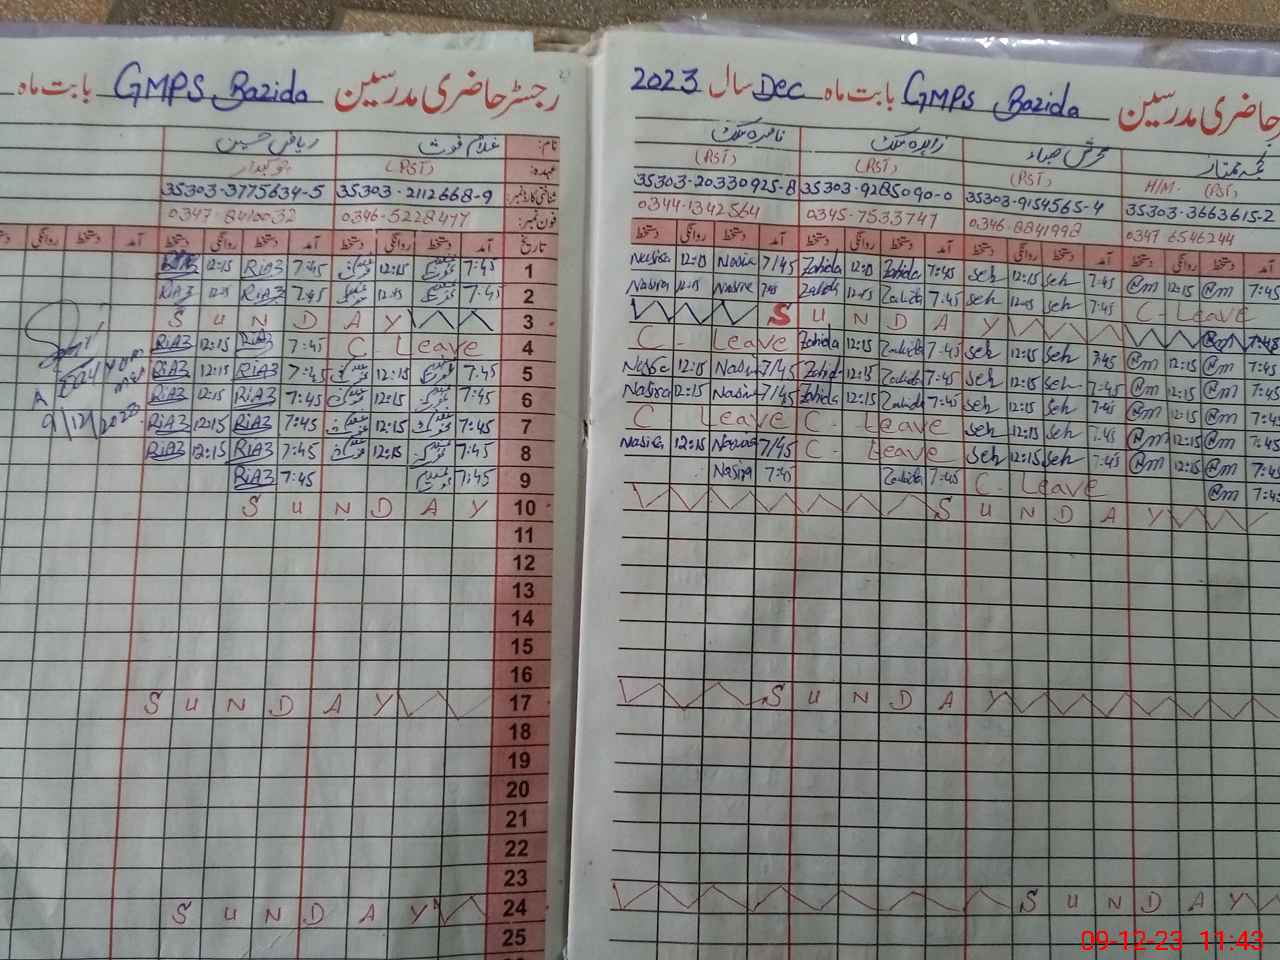 رجسٹر حاضری مدرسین GMPS Bazida بابت ماہ
نام: غلام غوث ریاض حسین
عہدہ: (PST) چوکیدار
شناختی کارڈ نمبر: 35303-2112668-9 35303-3775634-5
فون نمبر: 0346-5228477 0347-8410032
تاریخ آمد دستخط روانگی دستخط آمد دستخط روانگی دستخط آمد دستخط روانگی
1 7:45 12:15 7:45 RiAZ 12:15 RiAZ
2 7:45 12:15 7:45 RiAZ 12:15 RiAZ
3 SUNDAY
4 C Leave 7:45 RiAZ 12:15 RiAZ
5 7:45 12:15 7:45 RiAZ 12:15 RiAZ
6 7:45 12:15 7:45 RiAZ 12:15 RiAZ
7 7:45 12:15 7:45 RiAZ 12:15 RiAZ
8 7:45 12:15 7:45 RiAZ 12:15 RiAZ
9 7:45 7:45 RiAZ
10 SUNDAY
11
12
13
14
15
16
17 SUNDAY
18
19
20
21
22
23
24 SUNDAY
25
9/12/2023
حاضری مدرسین GMPS Bazida بابت ماہ Dec سال 2023
زاہدہ ملک ناصرہ ملک
H/M. (PST) (PST) (PST) (PST)
35303-3663615-2 35303-9154565-4 35303-9285090-0 35303-20330925-8
0347 6546244 0346-8841998 0345-7533747 0344-1342564
آمد دستخط روانگی دستخط آمد دستخط روانگی دستخط آمد دستخط روانگی دستخط آمد دستخط روانگی دستخط
7:45 @m 12:15 @m 7:45 Seh 12:15 Seh 7:45 Zahida 12:15 Zahida 7/45 Nasira 12:15 Nasira
C-Leave 7:45 Seh 12:15 Seh 7:45 Zahida 12:15 Zahida 7:45 Nasira 12:15 Nasira
SUNDAY
7:45 @m 12:15 @m 7:45 Seh 12:15 Seh 7:45 Zahida 12:15 Zahida C- Leave
7:45 @m 12:15 @m 7:45 Seh 12:15 Seh 7:45 Zahida 12:15 Zahida 7/45 Nasira 12:15 Nasira
7:45 @m 12:15 @m 7:45 Seh 12:15 Seh 7:45 Zahida 12:15 Zahida 7/45 Nasira 12:15 Nasira
7:45 @m 12:15 @m 7:45 Seh 12:15 Seh C- Leave C Leave
7:45 @m 12:15 @m 7:45 Seh 12:15 Seh C- Leave 7/45 Nasira 12:15 Nasira
7:45 @m C-Leave 7:45 Zahida 7:45 Nasira
SUNDAY
SUNDAY
SUNDAY
09-12-23 11:43